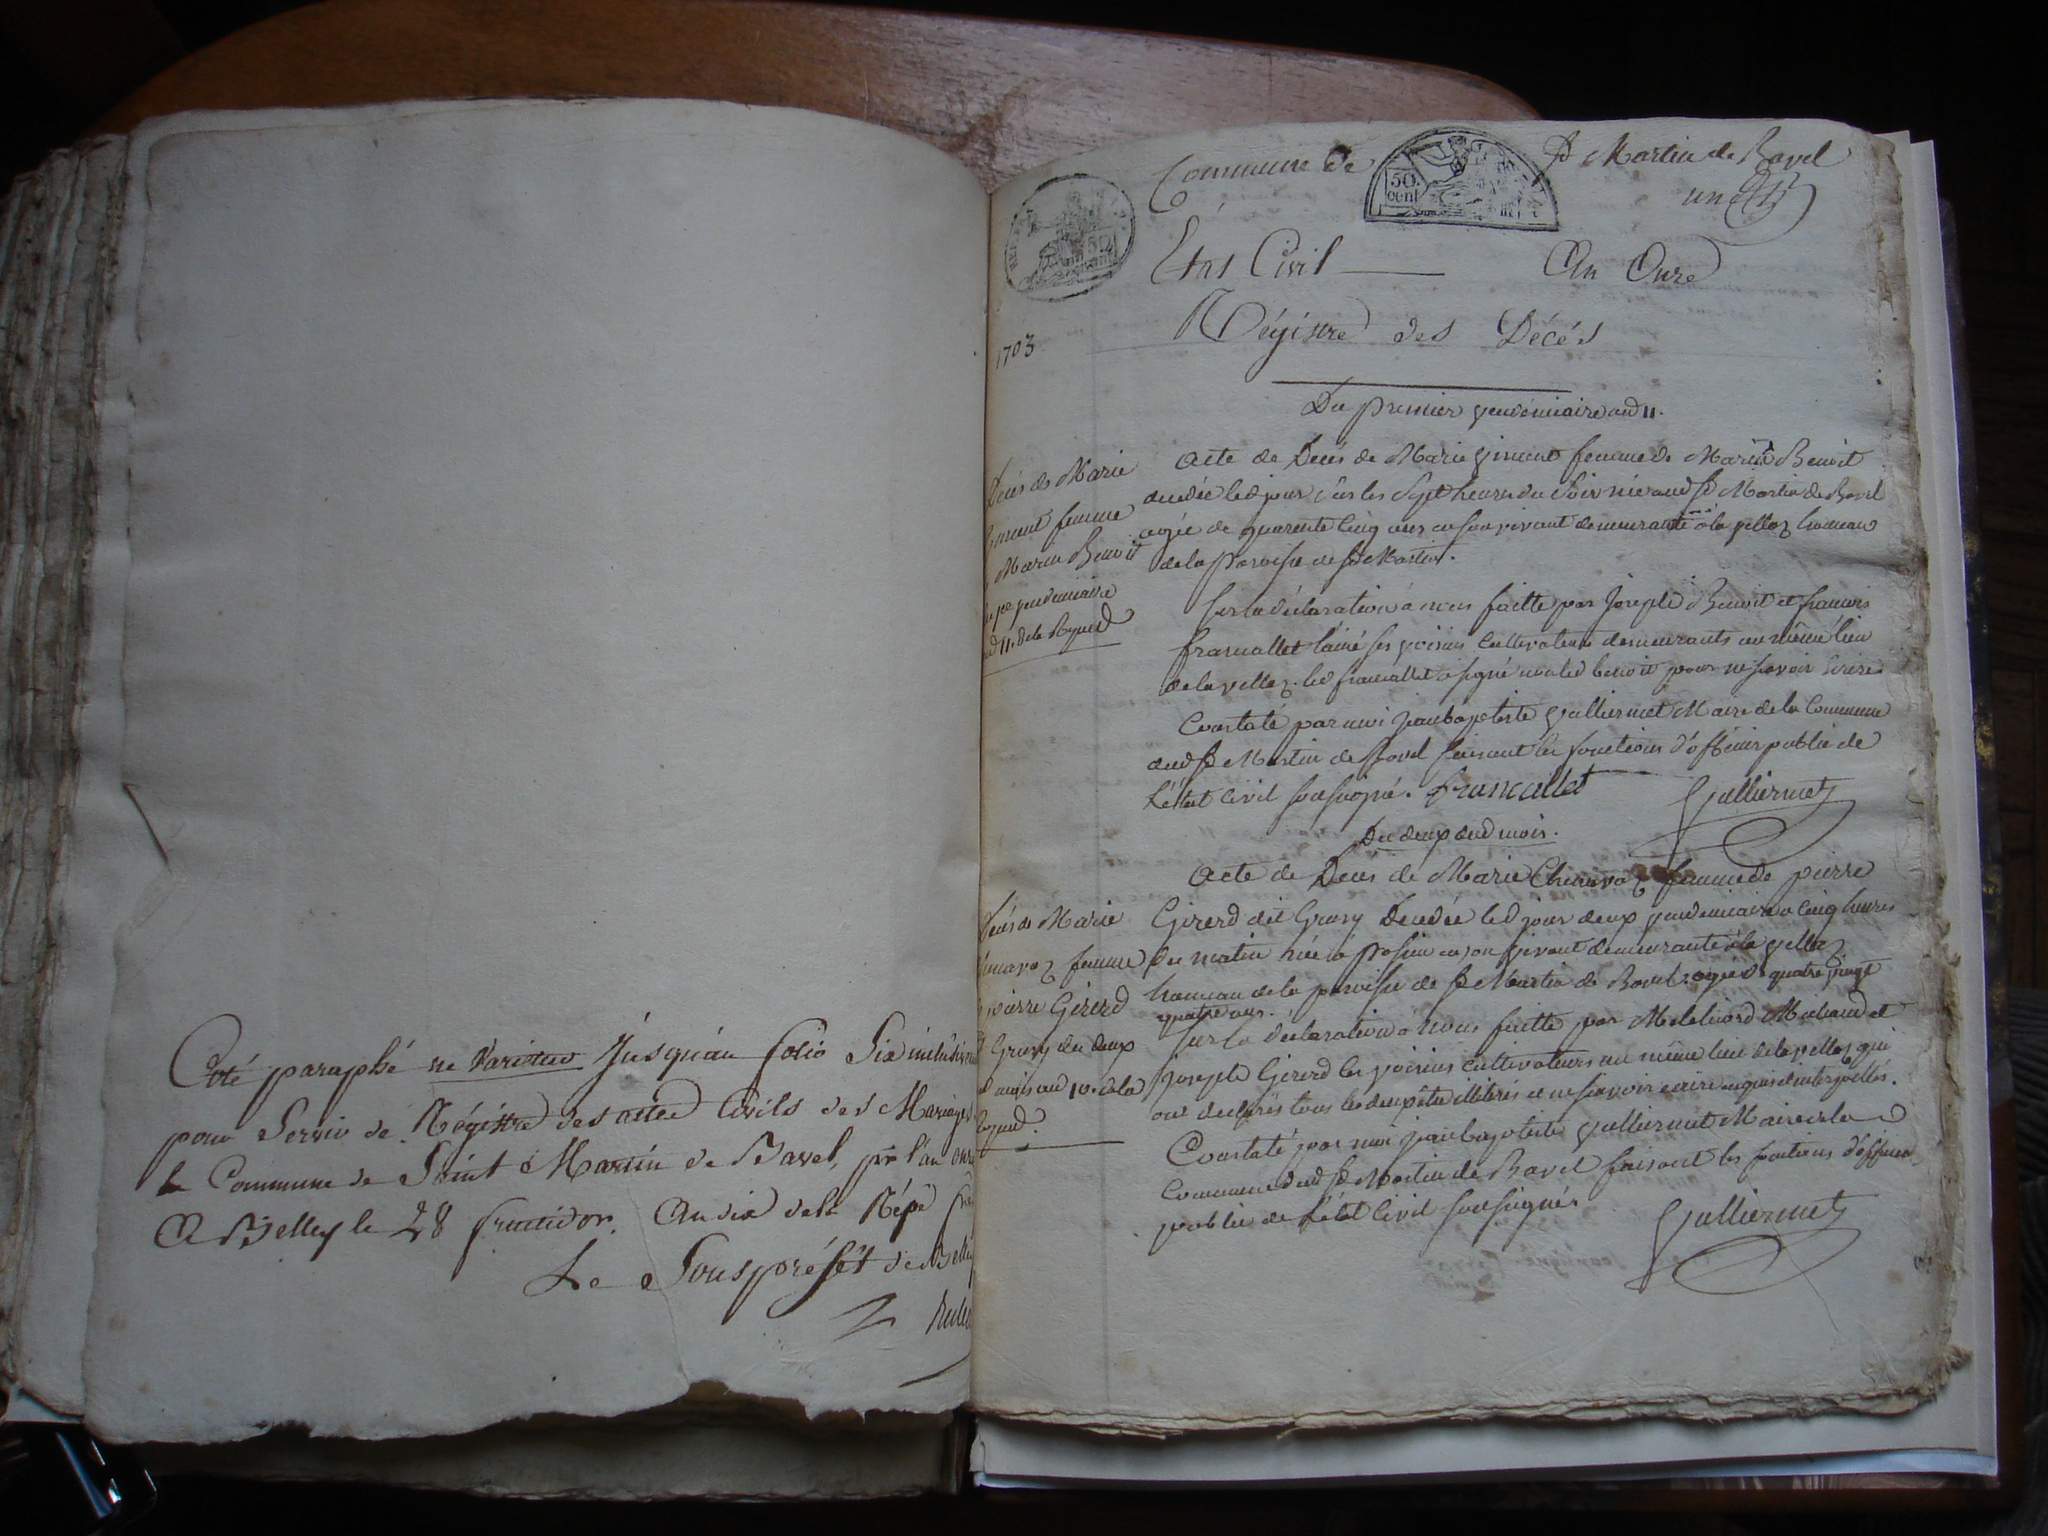 Coté paraphé ne varietur Jusqu'au folio Six inclusivem
pour Servir de Régistre des actes Civils des Mariages
la Commune de Saint Martin de Bavel, pr l'an onze
A Belley le 28 fructidor. An dix de la Répe fr
Le Sous préfét de Belley
Commune de St Martin de Bavel
50. cent
un
Etat Civil An Onze
Régistre des Décés
1703
Du premier vendémiaire and 11.
Décés de Marie
femme
Marin Benoit
pr vendemiaire
11. de la Repued
acte de Décés de Marie femme de Marin Benoit
decedée led jour sur les Sept heures du Soir née aud St Martin de Bavel
agée de quarente cinq ans en son vivant demeurante à la vellaz hameau
de la Paroisse de St Martin.
sur la déclaration à nous faitte par Joseph Benoit et francois
francallet lainé ses voisins Cultivateurs demeurants au même lieu
de la vellaz. led francallet a signé non led benoit pour ne savoir écrire
Constaté par moi jean baptiste Gulliermet Maire de la Commune
dud St Martin de Bavel faisant les fonctions d'officier public de
L'état Civil soussigné. francallet Gulliermet
Du deux dud mois.
acte de Décés de Marie Chenavaz femme de pierre
Décés de Marie
femme
pierre Girerd
du deux
mois and de la
Girerd dit Decedée led jour deux vendemiaire a cinq heures
du matin née à en son vivant demeurante à la vellaz
hameau de la paroisse de St Martin de Bavel. agée de quatre vingt
quatre ans.
sur la declaration à nous faitte par Michaud et
joseph Girerd les voisins cultivateurs au même lieu de la vellaz qui
ont declarés tous les deux être illiterés et ne savoir ecrire enquis et interpellés.
Constaté par moi jean baptiste Gulliermet Maire de la
Commune dud St Martin de Bavel faisant les fontions d'officier
public de L'état Civil soussigné
Gulliermet